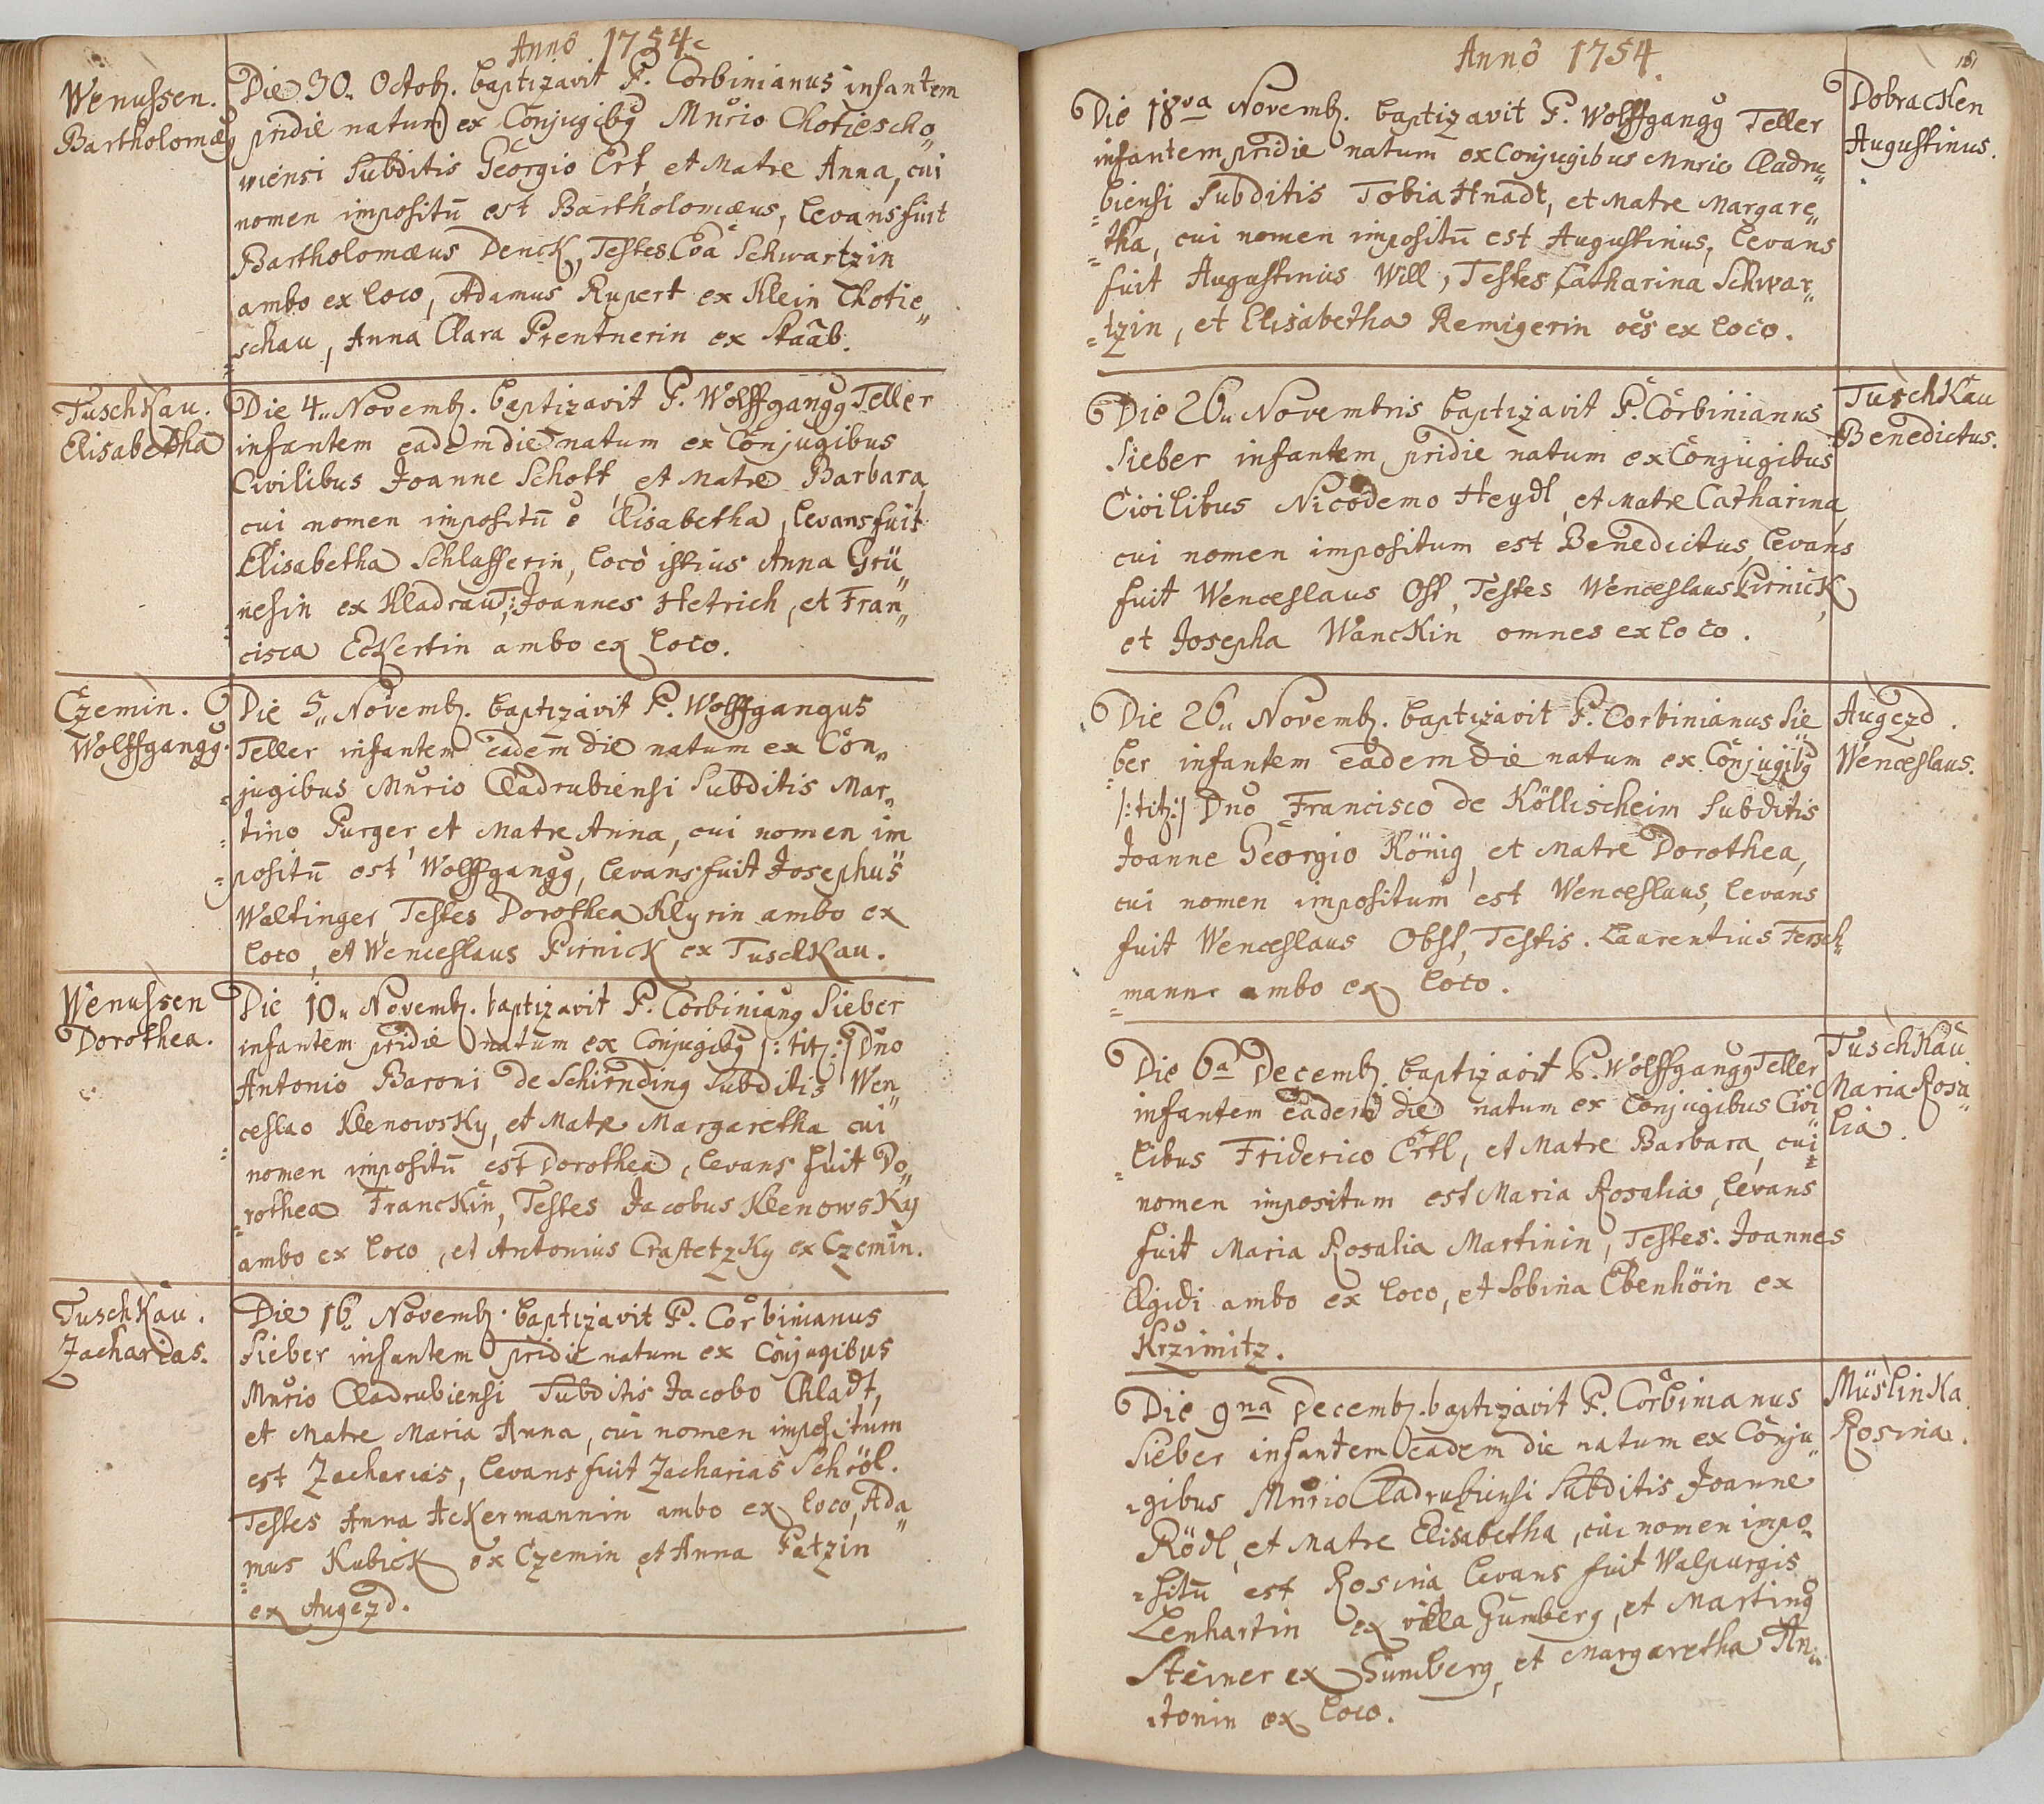 Anno 1754.
Wenussen.
Bartholomæg
Die 30. Octob. baptizavit P. Corbinianus infantem
pridie natum ex Conjugibg Mnrio Chotiescho„
wiensi Subditis Georgio Ert, et Matre Anna, cui
nomen impositū est Bartholomæus, levans fuit
Bartholomæus Denck, Testes Eva Schwartzin
ambo ex loco, Adamus Rupert ex Klein Chotie„
schau, Anna Clara Prentnerin ex Staab.
Tuschkau.
Elisabetha
Die 4. Novemb. baptizavit P. Wolffgangg Teller
infantem eadem die natum ex Conjugibus
Civilibus Joanne Schott, et Matre Barbara,
cui nomen impositū ē Elisabetha, levans fuit
Elisabetha Schlasserin, loco istius Anna Grü„
nesin ex Kladrau, T: Joannes Hetrich, et Fran„
cisca Eckertin ambo ex loco.
Czemin.
Wolffgangg.
Die 5. Novemb. baptizavit P. Wolffgangus
Teller infantem eadem die natum ex Con„
jugibus Mnrio Cladrubiensi Subditis Mar„
tino Purger, et Matre Anna, cui nomen im
positū est Wolffgangg, levans fuit Josephus
Waltinger, Testes Dorothea Klyrin ambo ex
loco, et Wenceslaus Pirnick ex Tuschkau.
Wenussen
Dorothea.
Die 10. Novemb. baptizavit P. Corbiniang Sieber
infantem pridie natum ex Conjugibg /: titz :/ Dno
Antonio Baroni de Schirnding Subditis Wen„
ceslao Klenowsky, et Matre Margaretha cui
nomen impositū est Dorothea, levans fuit Do„
rothea Franckin, Testes Jacobus Klenowsky
ambo ex loco, et Antonius Crastetzky ex Czemin.
Tuschkau.
Zacharias.
Die 16. Novemb. baptizavit P. Corbinianus
Sieber infantem pridie natum ex Conjugibus
Mnrio Cladrubiensi Subditis Jacobo Chladt,
et Matre Maria Anna, cui nomen impositum
est Zacharias, levans fuit Zacharias Schröl.
Testes Anna Ackermannin ambo ex loco, Ada„
mus Kubick ex Czemin et Anna Patzin
ex Augezd.
Anno 1754.
Dobracken
Augustinus.
Die 18va Novemb. baptizavit P. Wolffgangg Teller
infantem pridie natum ex Conjugibus Mnrio Cladru„
biensi Subditis Tobia Hnadt, et Matre Margare„
tha, cui nomen impositū est Augustinus, levans
fuit Augustinus Will, Testes Catharina Schwar„
tzin, et Elisabetha Remigerin oēs ex loco.
Tuschkau
Benedictus.
Die 26. Novembris baptizavit P. Corbinianus
Sieber infantem pridie natum ex Conjugibus
Civilibus Nicodemo Heydl, et Matre Catharina,
cui nomen impositum est Benedictus, levans
fuit Wenceslaus Ost, Testes Wenceslaus Pirnick,
et Josepha Wanckin omnes ex loco.
Augezd.
Wenceslaus.
Die 26. Novemb. baptizavit P. Corbinianus Sie
ber infantem eadem die natum ex Conjugibg
/: titz :/ Dno Francisco de Köllischeim Subditis
Joanne Georgio König, et Matre Dorothea,
cui nomen impositum est Wenceslaus, levans
fuit Wenceslaus Obst, Testis. Laurentius Fersch„
mann ambo ex loco.
Tuschkau
Maria Rosa„
lia.
Die 6a Decemb. baptizavit P. Wolffgangg Teller
infantem eadem die natum ex Conjugibus Civi
libus Friderico Ertl, et Matre Barbara, cui
nomen impositum est Maria Rosalia, levans
fuit Maria Rosalia Martinin, Testes. Joannes
Ægidi ambo ex loco, et Sobina Ebenhöin ex
Krzimitz.
Müslinka.
Rosina.
Die 9na Decemb. baptizavit P. Corbinianus
Sieber infantem eadem die natum ex Conju„
gibus Mnrio Cladrubiensi Subditis Joanne
Rödl, et Matre Elisabetha, cui nomen impo„
sitū est Rosina levans fuit Walpurgis
Lenhartin ex villa Gumberg, et Marting
Steiner ex Gumberg, et Margaretha An„
tonin ex loco.